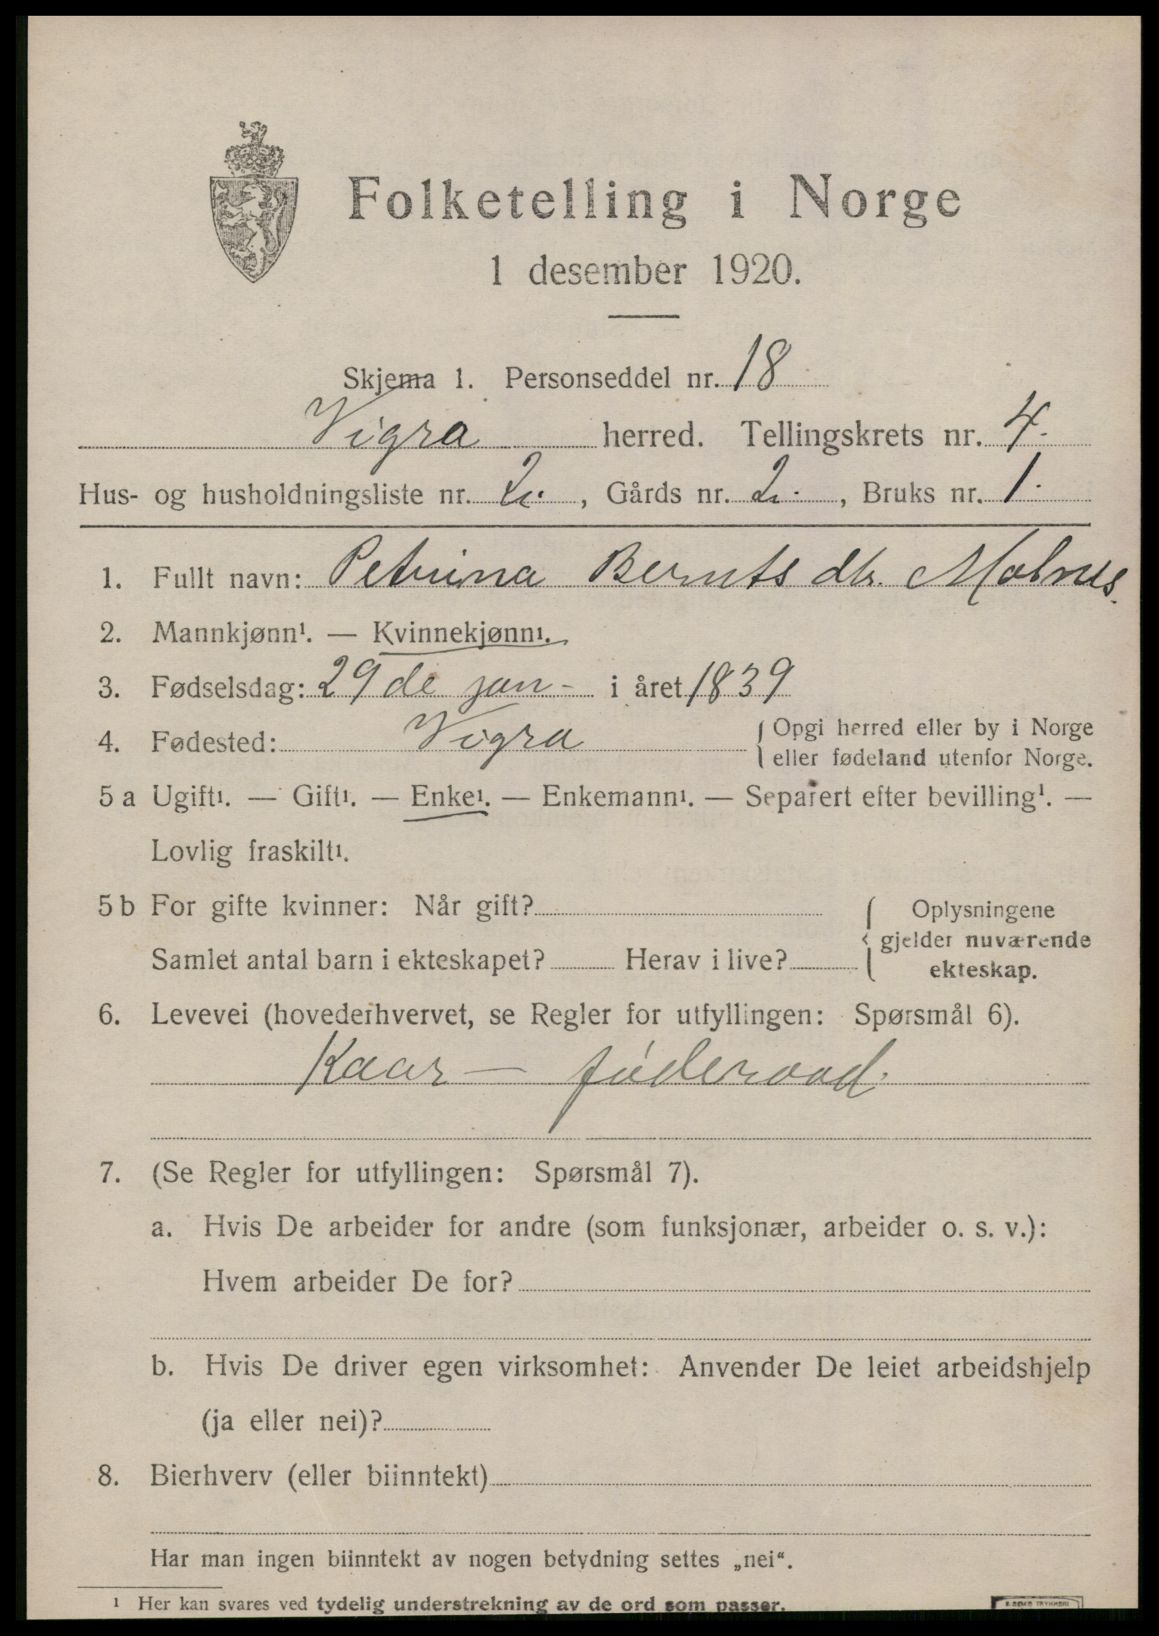 Folketelling i Norge
1 desember 1920.
Skjema 1. Personseddel nr. 18
Vigra herred. Tellingskrets nr. 4.
Hus- og husholdningsliste nr. 2. , Gårds nr. 2. , Bruks nr. 1.
1. Fullt navn: Petrina Bernts dtr. Molnes.
2. Mannkjønn¹. — Kvinnekjønn¹.
3. Fødselsdag: 29de jan- i året 1839
4. Fødested: Vigra { Opgi herred eller by i Norge
eller fødeland utenfor Norge.
5 a Ugift¹. — Gift¹. — Enke¹. — Enkemann¹. — Separert efter bevilling¹. —
Lovlig fraskilt¹.
5 b For gifte kvinner: Når gift? { Oplysningene
gjelder nuværende
Samlet antal barn i ekteskapet? Herav i live?
ekteskap.
6. Levevei (hovederhvervet, se Regler for utfyllingen: Spørsmål 6).
Kaar — føderaad.
7. (Se Regler for utfyllingen: Spørsmål 7).
a. Hvis De arbeider for andre (som funksjonær, arbeider o. s. v.):
Hvem arbeider De for?
b. Hvis De driver egen virksomhet: Anvender De leiet arbeidshjelp
(ja eller nei)?
8. Bierhverv (eller biinntekt)
Har man ingen biinntekt av nogen betydning settes „nei“.
¹ Her kan svares ved tydelig understrekning av de ord som passer.